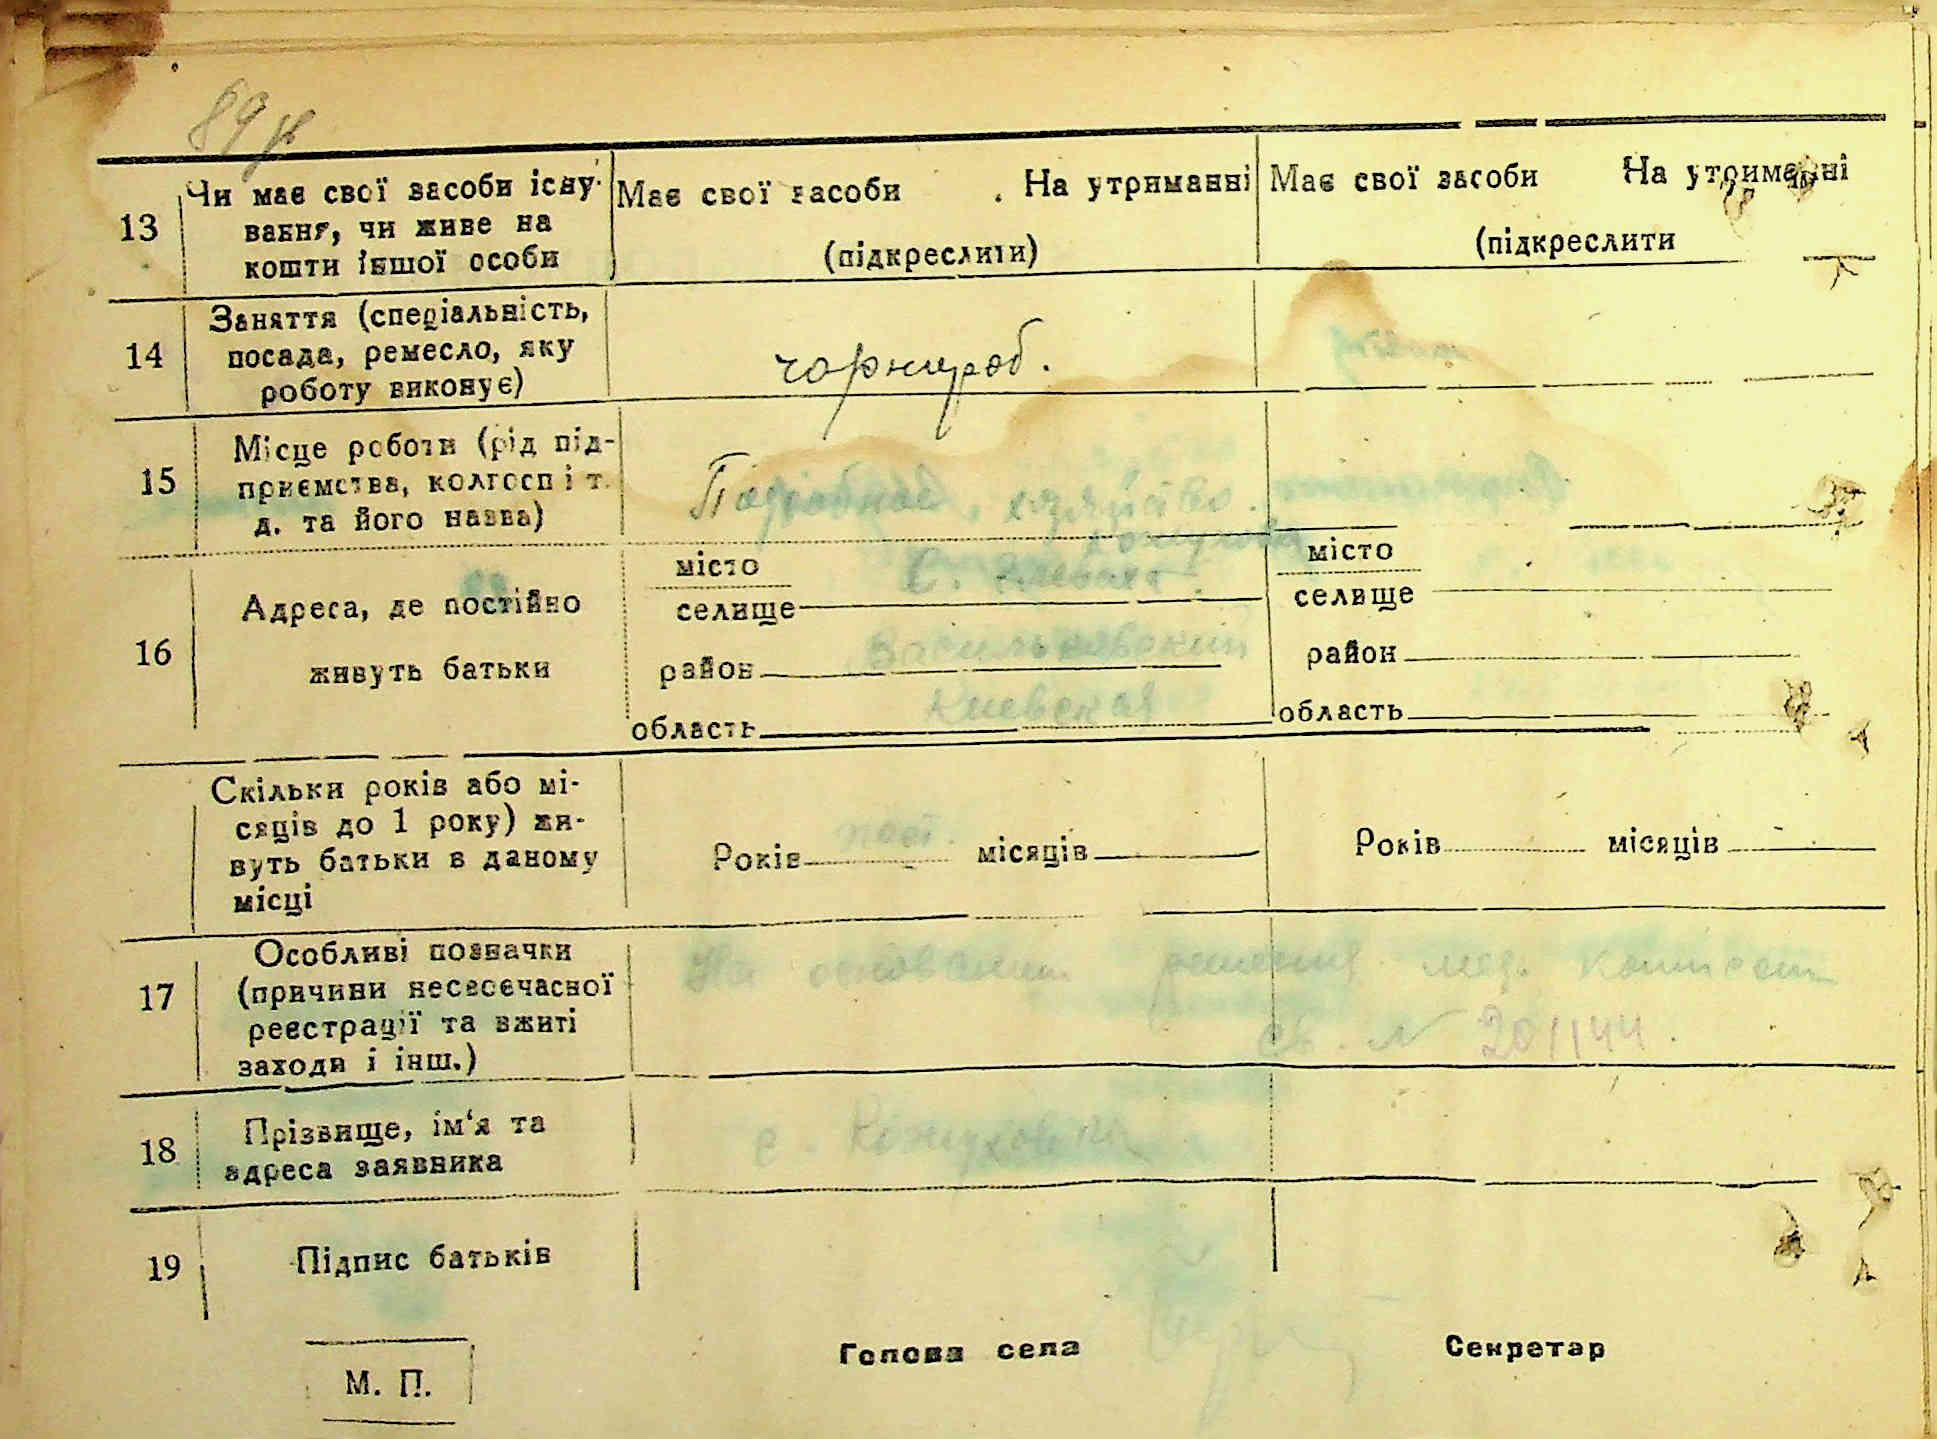 89
13 Чи має свої засоби існу-
вання, чи живе на
кошти іншої особи
Має свої засоби На утриманні
(підкреслити)
Має свої засоби На утриманні
(підкреслити
14 Заняття (спеціальність,
посада, ремесло, яку
роботу виконує)
чорнороб.
15 Місце роботи (рід під-
приємства, колгосп і т.
д. та його назва)
хозяйство.
16 Адреса, де постійно
живуть батьки
місто
селище
район Васильковский
область Киевская
місто
селище
район
область
Скільки років або мі-
сяців до 1 року) жи-
вуть батьки в даному
місці
Років пост. місяців
Років місяців
17 Особливі позначки
(причини несвоєчасної
реєстрації та вжиті
заходи і інш.)
На основании решения мед. комиссии
св. № 201144.
18 Прізвище, ім'я та
адреса заявника
с.
19 Підпис батьків
М. П.
Голова села Секретар